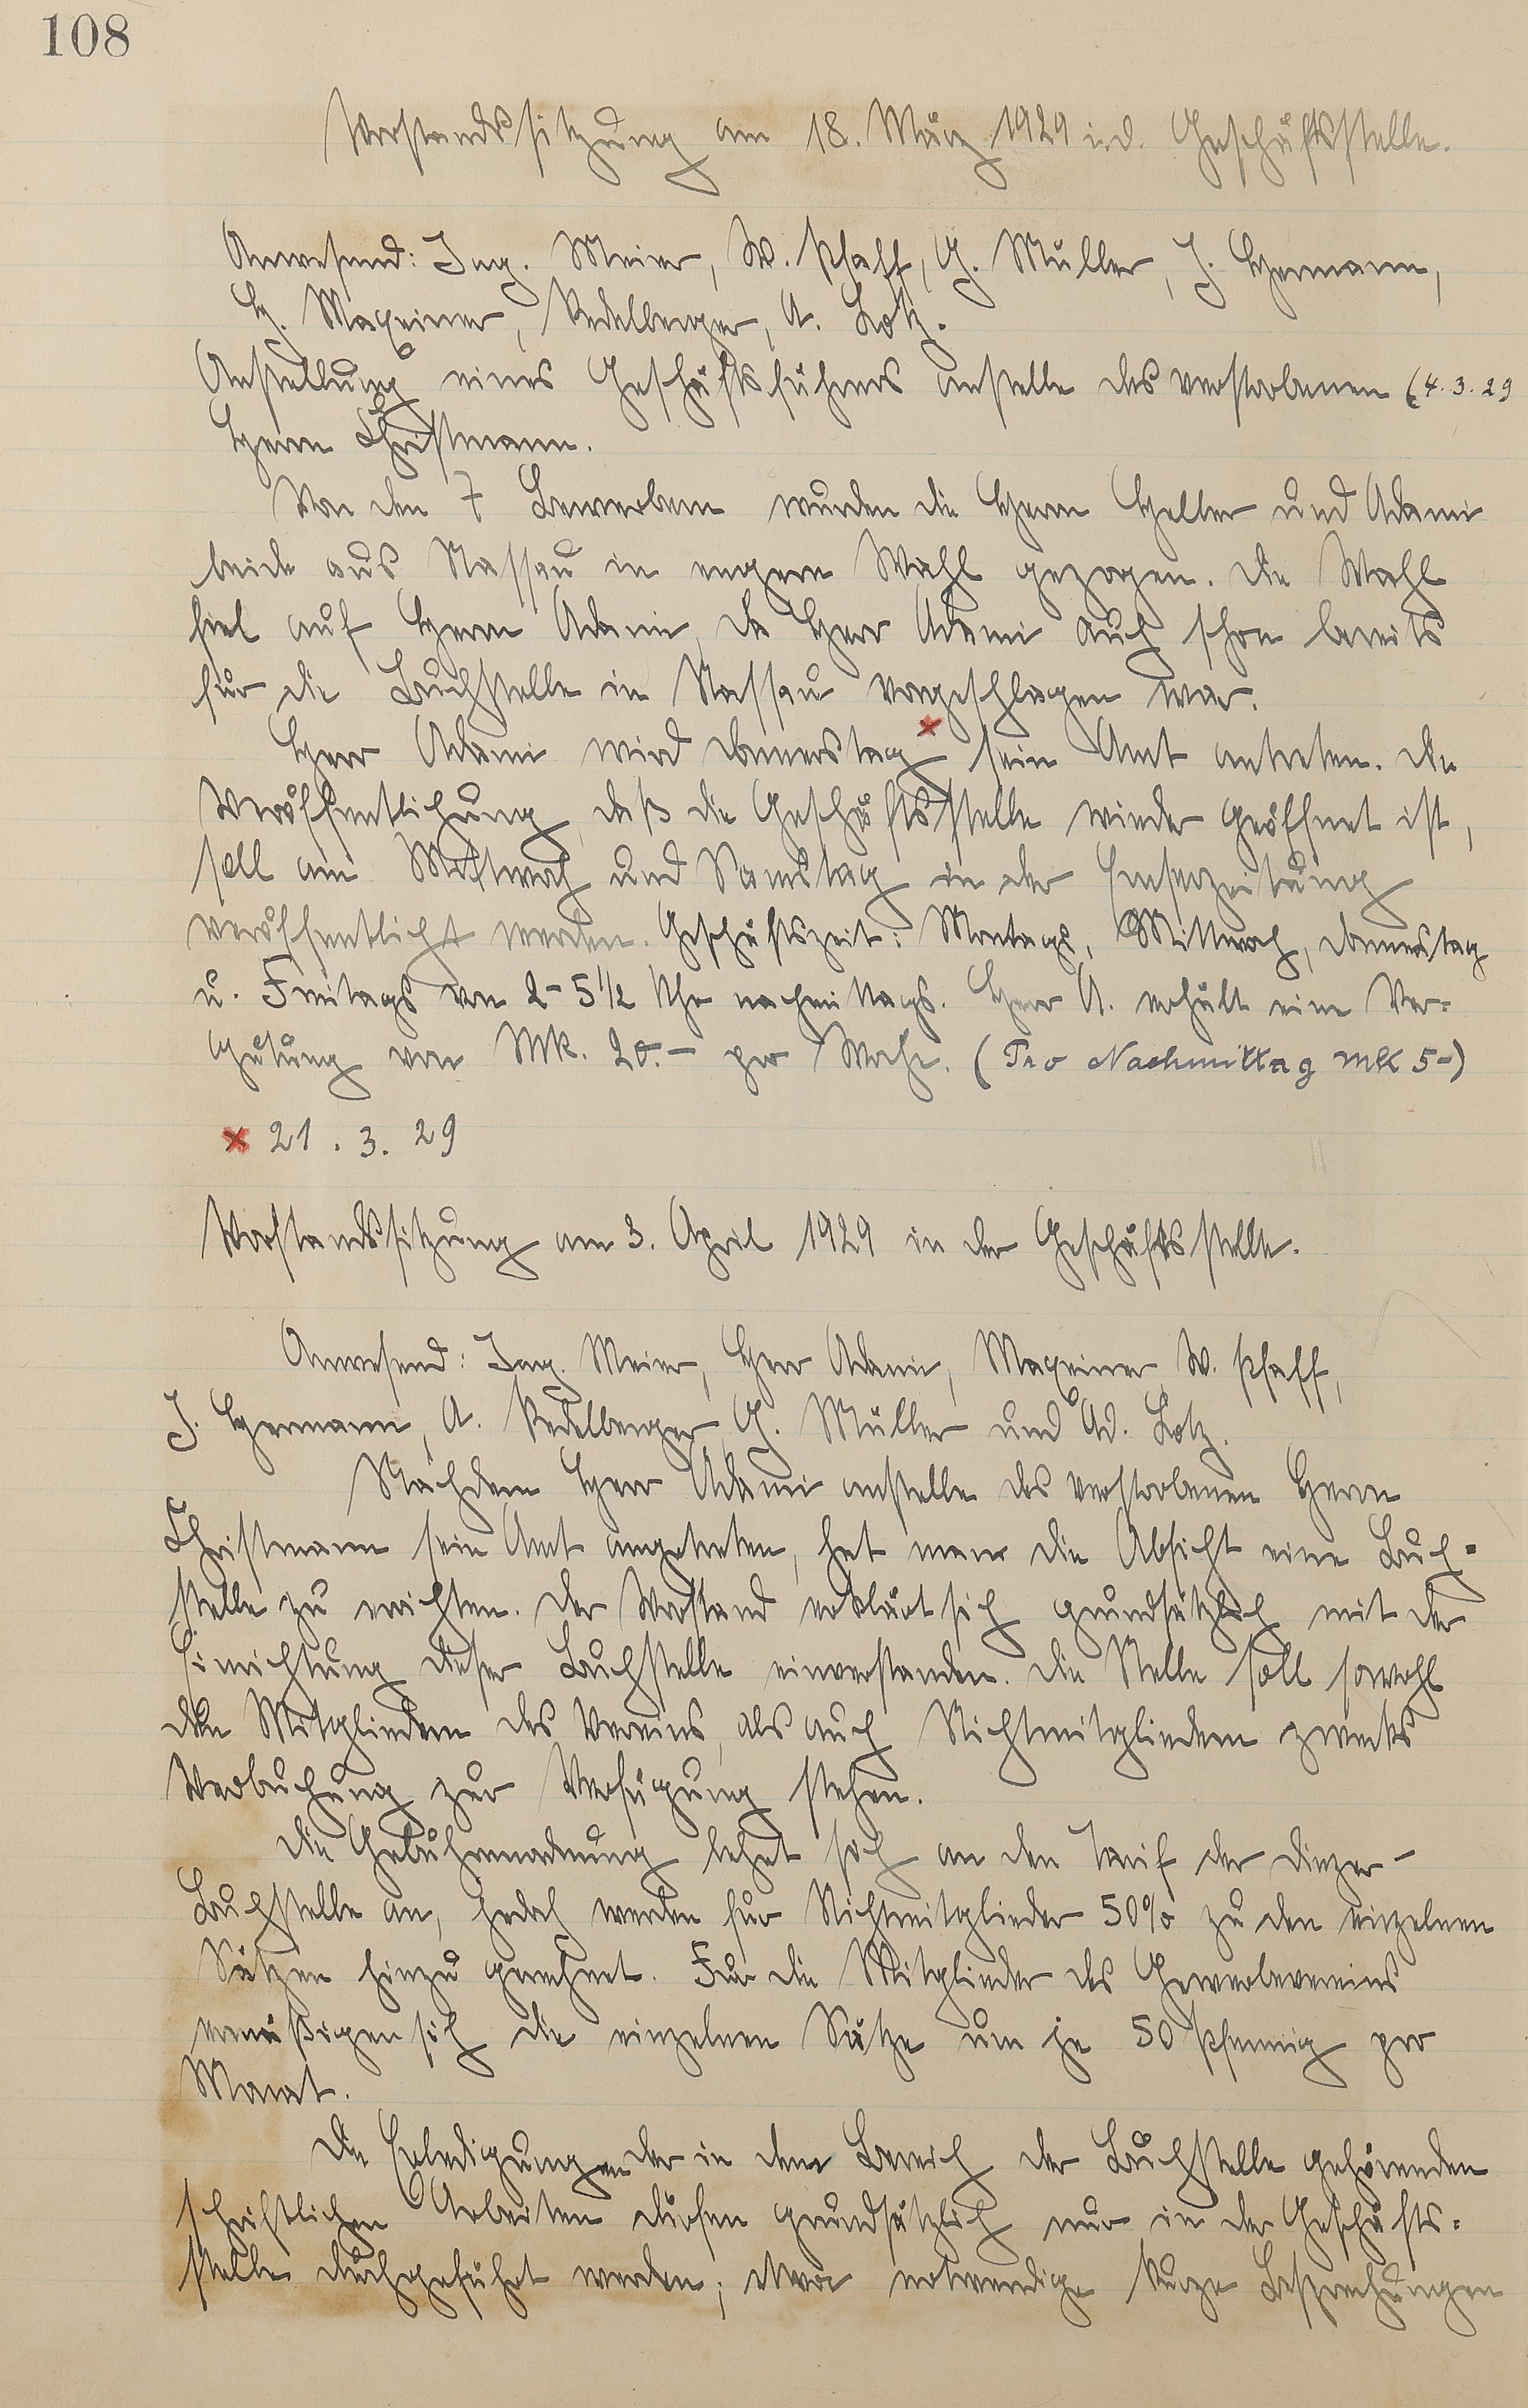 108
Vorstandssitzung am 18. März 1929 i.d. Geschäftsstelle.
Anwesend: Ing. Meier, W. Pfaff, G. Müller, J. Hermann,
H. Maxeiner, Redelberger, A. Lotz.
Anstellung eines Geschäftsführers anstelle des verstorbenen (4.3.29
Herrn Christmann.
Von den 7 Bewerbern wurden die Herrn Heller und Adami
beide aus Nassau in engere Wahl gezogen. Die Wahl
fiel auf Herrn Adami, da Herr Adami auch schon bereits
für die Buchstelle in Nassau vorgeschlagen war.
Herr Adami wird Donnerstag x sein Amt antreten. Die
Veröffentlichung, daß die Geschäftsstelle wieder geöffnet ist,
soll am Mittwoch und Samstag in der Emserzeitung
veröffentlicht werden. Geschäftszeit: Montags, Mittwoch, Donnerstag
u. Freitags von 2-5 1/2 Uhr nachmittags. Herr A. erhält eine Ver=
gütung von Mk. 20.- pro Woche. (Pro Nachmittag Mk 5-)
x 21.3.29
Vorstandssitzung am 3. April 1929 in der Geschäftsstelle.
Anwesend: Ing. Meier, Herr Adami, Maxeiner, W. Pfaff,
J. Hermann, A. Redelberger, G. Müller und Ad. Lotz.
Nachdem Herr Adami anstelle des verstorbenen Herrn
Christmann sein Amt angetreten, hat man die Absicht eine Buch=
stelle zu errichten. Der Vorstand erklärt sich grundsätzlich mit der
Einrichtung dieser Buchstelle einverstanden. Die Stelle soll sowohl
den Mitgliedern des Vereins, als auch Nichtmitgliedern zwecks
Verbuchung zur Verfügung stehen.
Die Gebührenordnung lehnt sich an den Tarif der Diezer-
Buchstelle an, jedoch werden für Nichtmitglieder 50% zu den einzelnen
Sätzen hinzu gerechnet. Für die Mitglieder des Gewerbevereins
ermäßigen sich die einzelnen Sätze um je 50 Pfennig pro
Monat.
Die Erledigungen der in den Bereich der Buchstelle gehörenden
schriftlichen Arbeiten dürfen grundsätzlich nur in der Geschäfts=
stelle durchgeführt werden; etwa notwendige kurze Besprechungen